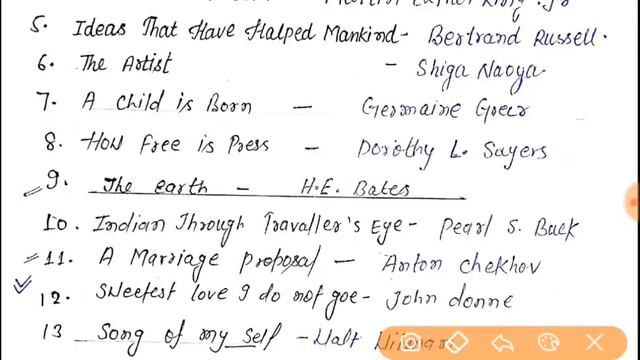 Martin Luther King Jr
5. Ideas That Have Halped Mankind - Bertrand Russell.
6. The Artist - Shiga Naoya
7. A Child is Born - Germaine Greer
8. How Free is Press - Dorothy L. Sayers
9. The earth - H.E. Bates
10. Indian Through Travaller's Eye - Pearl S. Buck
11. A Marriage proposal - Anton Chekhov
12. Sweetest love I do not goe - John donne
13 Song of my self - Walt